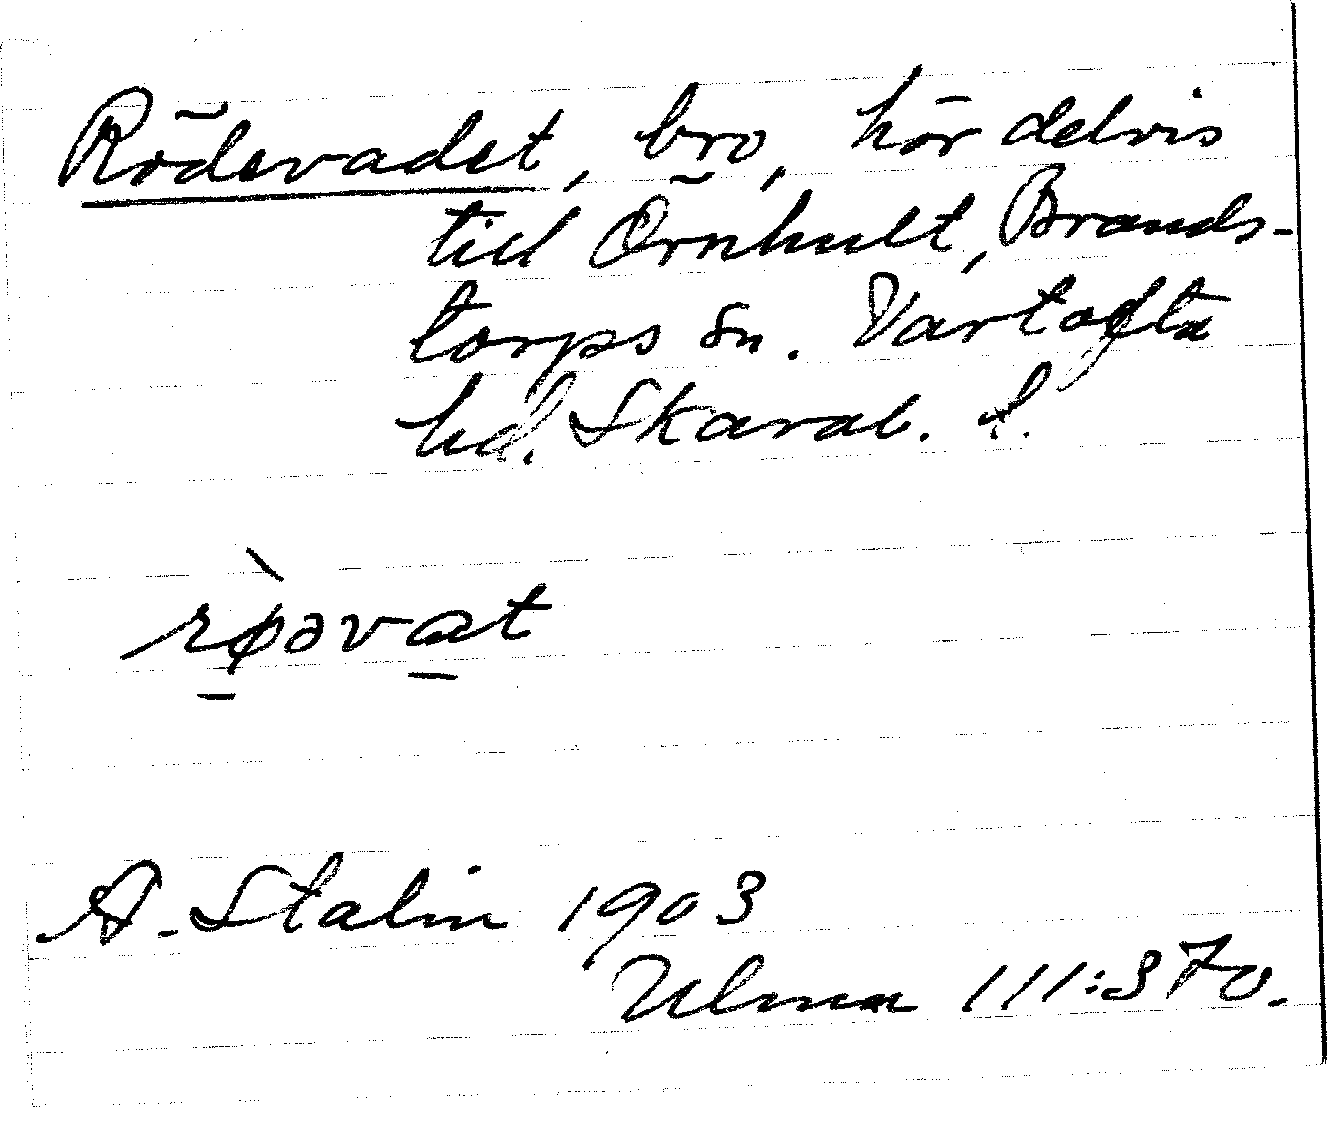 Rödevadet, bro, hör delvis
till Örnhult, Brands-
torps sn. Vartofta
hd. Skarab. l.
rø̀əvat
A. Stalin 1903
Ulma 111:370.